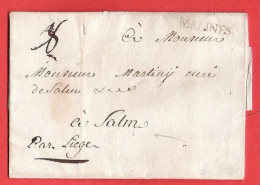 MALINES
à Monsieur
Monsieur Martiny curé
de Salm
à Salm
Par Liege